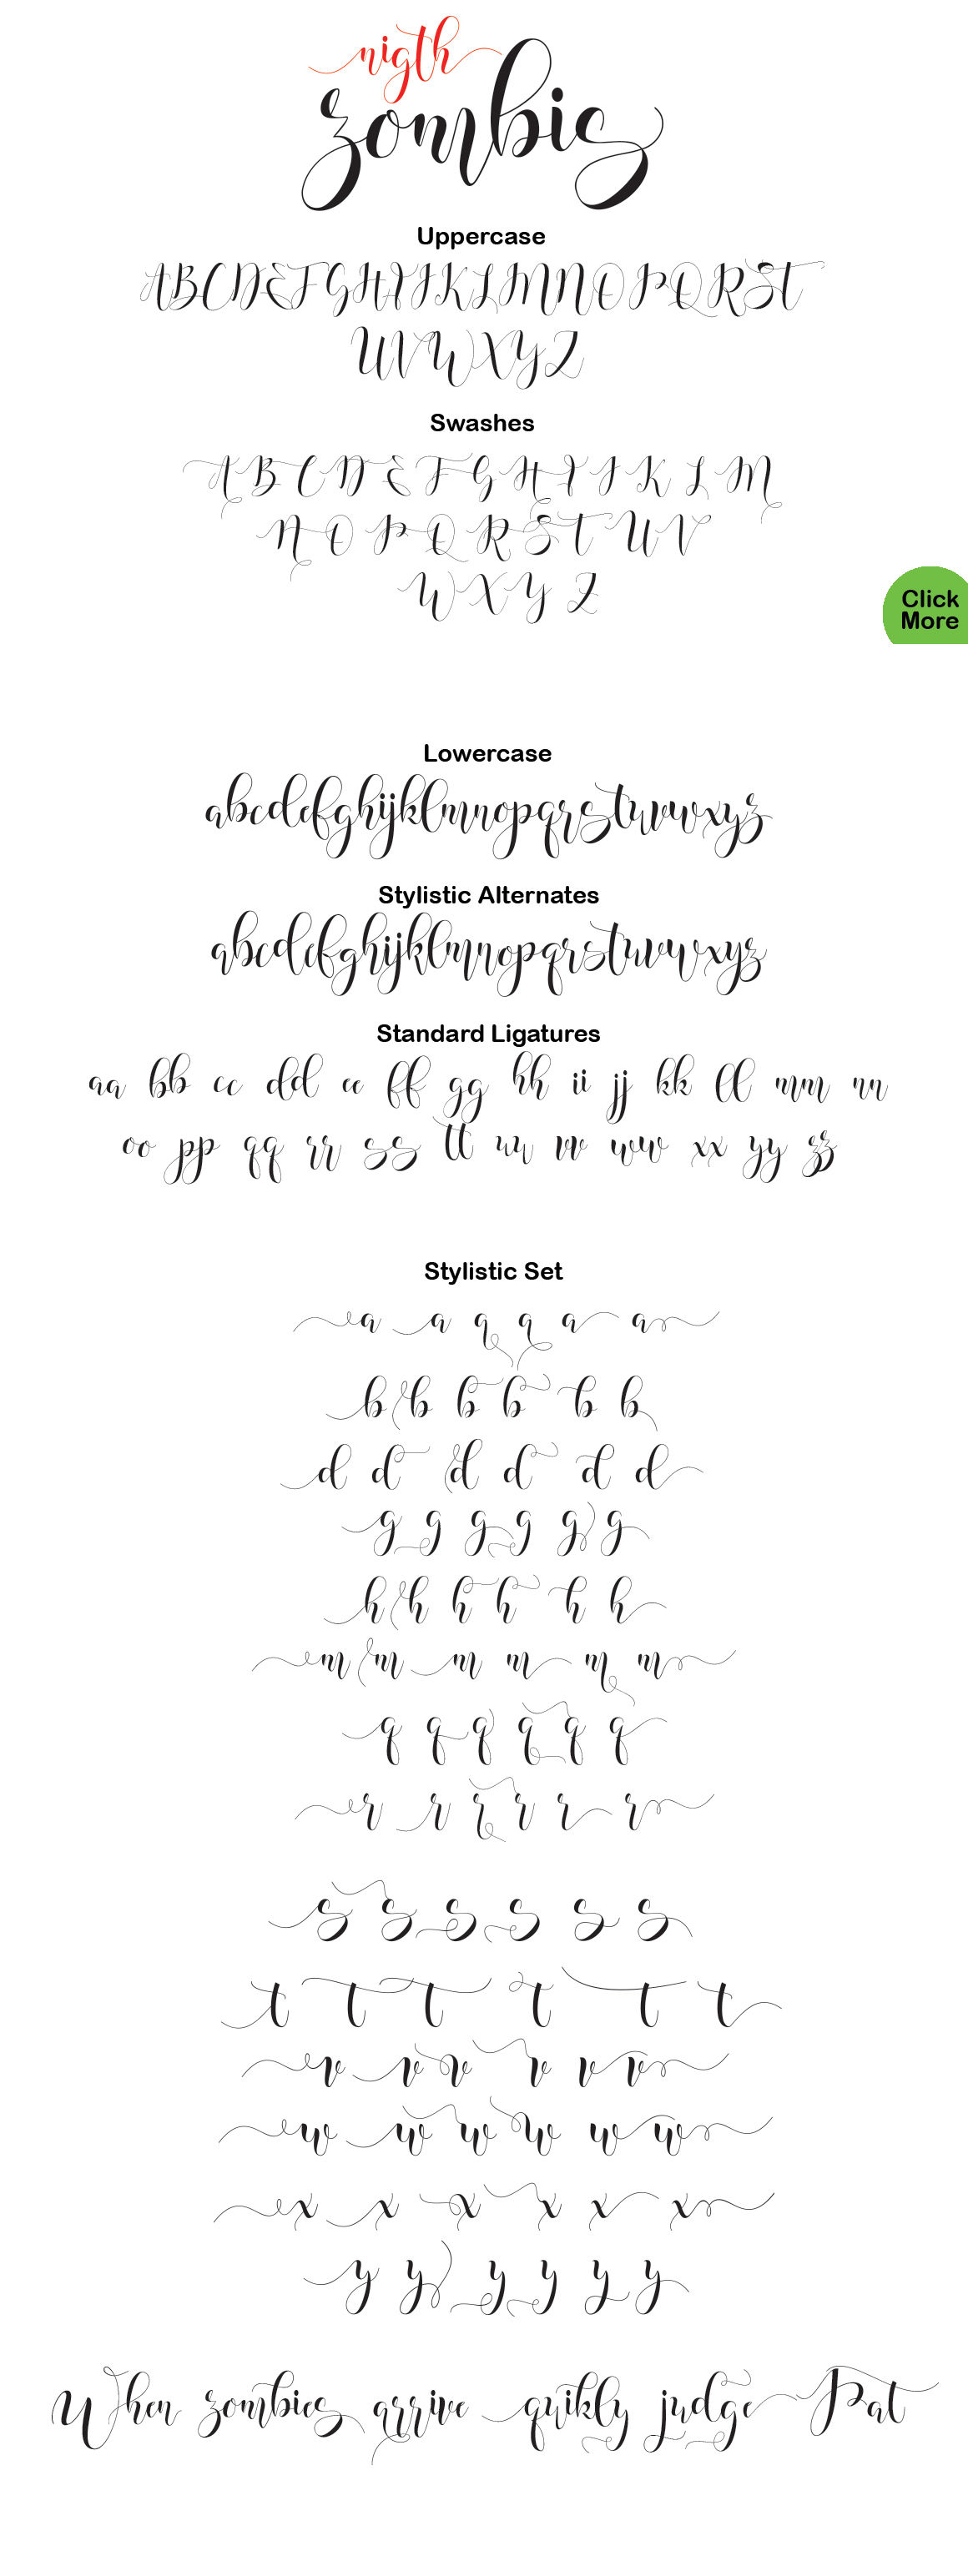 nigth
zombis
Uppercase
ABCDEFGHIJKLMNOPQRST
UVWXYZ
Swashes
A B C D E F G H I J K L M
N O P Q R S T U V
W X Y Z
Click
More
Lowercase
abcdefghijklmnopqrstuvwxyz
Stylistic Alternates
abcdefghijklmnopqrstuvwxyz
Standard Ligatures
aa bb cc dd ee ff gg hh ii jj kk ll mm nn
oo pp qq rr ss tt uu vv ww xx yy zz
Stylistic Set
a a a a a a
b b b b b b
d d d d d d
g g g g g g
h h h h h h
m m m m m m
q q q q q q
r r r r r r
s s s s s s
t t t t t t
v v v v v v
w w w w w w
x x x x x x
y y y y y y
When zombies arrive quikly judge Pat